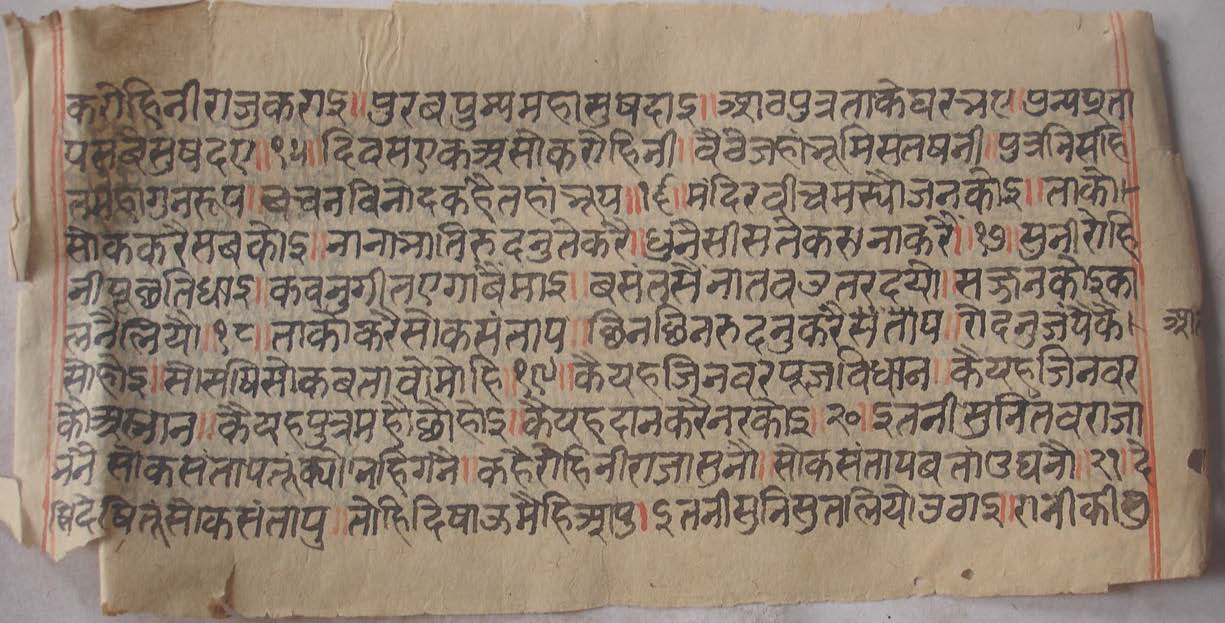 करोहिनीराजुकराइ॥पुरबपुन्यमहासुषदाइ॥आठपुत्रताकेघरभए॥पुन्यपुता
पसबैसुषदए॥१५॥दिवसएकअसोकरोहिनी॥बैठेजहांभूमिसतषनी॥पुत्रनिसहि
तमहागुनरूप॥बचनविनोदकहैतहांभूप॥१६॥मंदिरवीचमस्यौजनकोइ॥ताकौ
सोककरैसबकोइ॥नानाभातिरुदनुतेकरै॥धुनैसीसतेकरुनाकरैं॥१७॥सुनीरोहि
नीपूछतिधाइ॥कवनुगीतएगाबैंमाइ॥बसंतसैनातवउतरदयो॥सज्जनकोइका
लनैलियौ॥१८॥ताकौकरैसोकसंताप॥छिनछिनरुदनुकरैसंताप॥रोदनुजपैकै
सोहोइ॥सोसषिसोकबतावोमोहि॥१९॥कैयहजिनवरपूजविधान॥कैयहजिनवर
कौअस्नान॥कैयहपुत्रमहोछोहोइ॥कैयहदानकरैनरकोइ॥२०॥इतनीसुनितवराजा
भनै सोकसंतापतूंक्योंनहिगनै॥कहैरोहिनीराजासुनौ॥सोकसंतापबताउघनौ॥२१॥दे
षिदेषितूंसोकसंतापु॥तोहिदिषाऊमैहिआपु॥इतनीसुनिसुतलियौउठाइ॥रानीकीगु